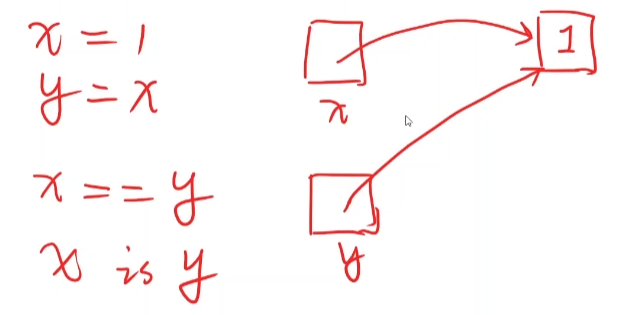 x = 1
y = x
x == y
x is y
1
x
y